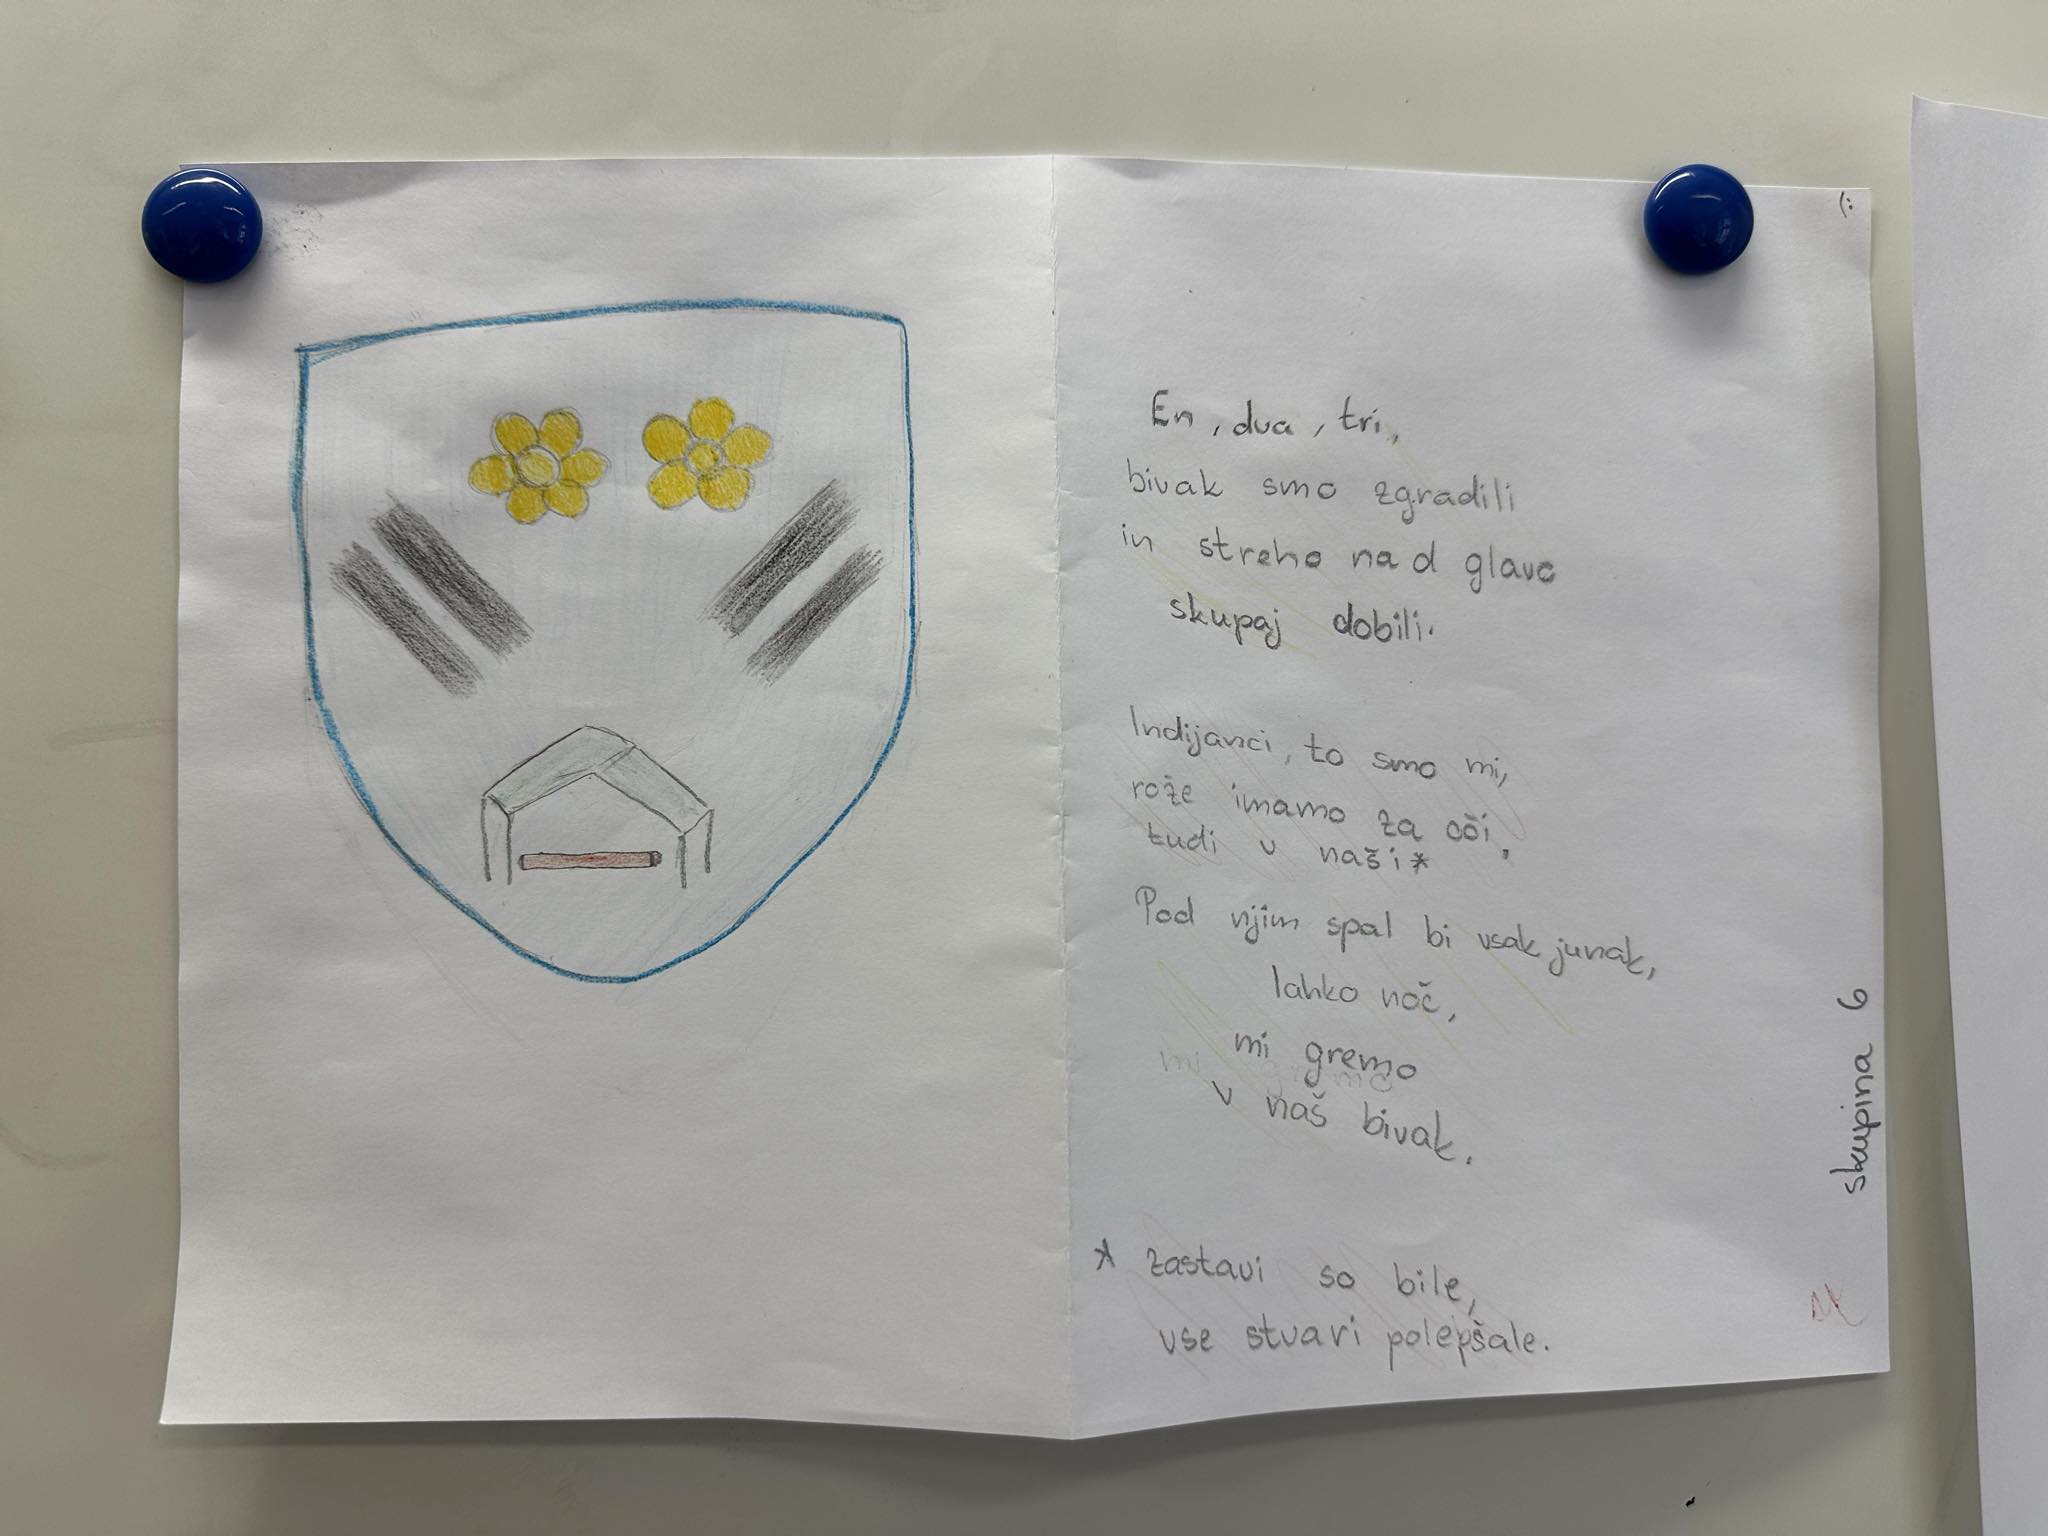 (:
En, dva, tri,
bivak smo zgradili
in streho nad glavo
skupaj dobili.
Indijanci, to smo mi,
rože imamo za oči,
tudi v naši*
Pod njim spal bi vsak junak,
lahko noč,
mi gremo
v naš bivak.
* zastavi so bile,
vse stvari polepšale.
skupina 6